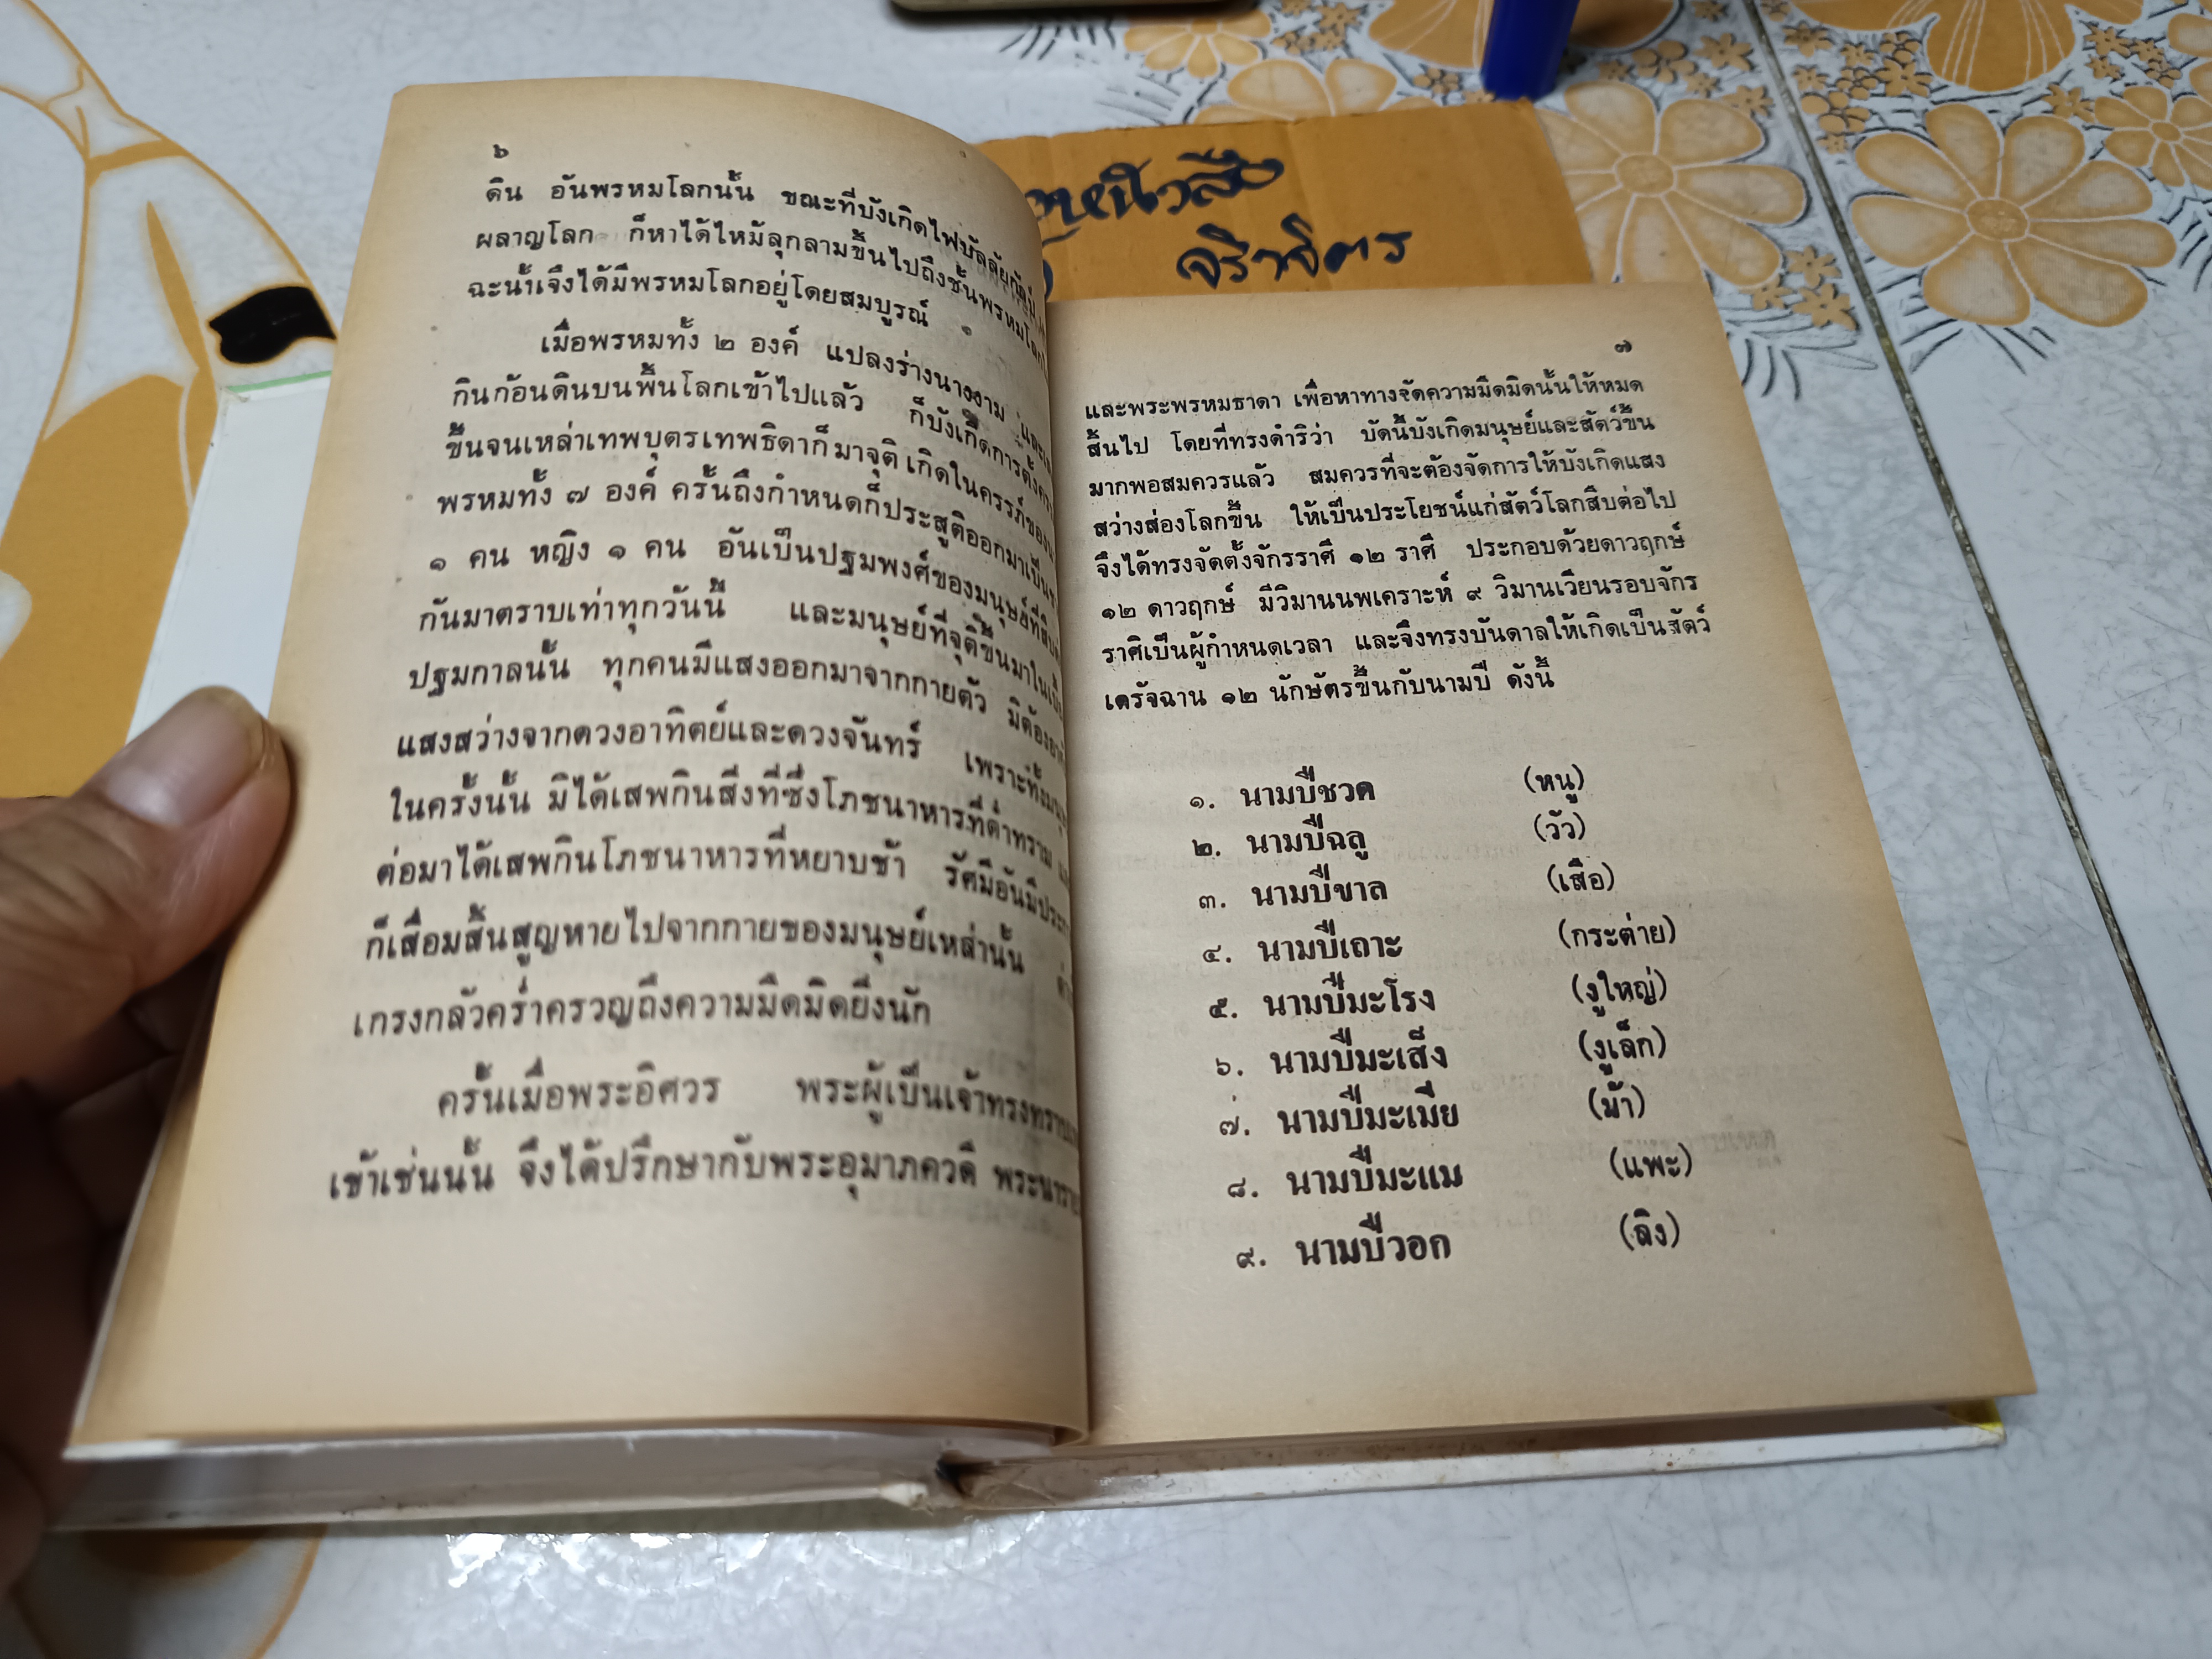 ๖
ดิน อันพรหมโลกนั้น ขณะที่บังเกิดไฟบัลลัยกัลป์
ผลาญโลก ก็หาได้ไหม้ลุกลามขึ้นไปถึงชั้นพรหมโลก
ฉะนั้นจึงได้มีพรหมโลกอยู่โดยสมบูรณ์
เมื่อพรหมทั้ง ๒ องค์ แปลงร่างนางงาม
กินก้อนดินบนพื้นโลกเข้าไปแล้ว ก็บังเกิดการตั้งครรภ์
ขึ้นจนเหล่าเทพบุตรเทพธิดาก็มาจุติ เกิดในครรภ์ของ
พรหมทั้ง ๗ องค์ ครั้นถึงกำหนดก็ประสูติออกมาเป็น
๑ คน หญิง ๑ คน อันเป็นปฐมพงศ์ของมนุษย์ที่สืบ
กันมาตราบเท่าทุกวันนี้ และมนุษย์ที่จุติขึ้นมาใน
ปฐมกาลนั้น ทุกคนมีแสงออกมาจากกายตัว มิต้อง
แสงสว่างจากดวงอาทิตย์และดวงจันทร์ เพราะ
ในครั้งนั้น มิได้เสพกินสิ่งที่ซึ่งโภชนาหารที่ต่ำทราม
ต่อมาได้เสพกินโภชนาหารที่หยาบช้า รัศมีอันมี
ก็เสื่อมสิ้นสูญหายไปจากกายของมนุษย์เหล่านั้น
เกรงกลัวคร่ำครวญถึงความมืดมิดยิ่งนัก
ครั้นเมื่อพระอิศวร พระผู้เป็นเจ้าทรงทราบ
เข้าเช่นนั้น จึงได้ปรึกษากับพระอุมาภควดี
หนังสือ
จริจิตร
๗
และพระพรหมธาดา เพื่อหาทางจัดความมืดมิดนั้นให้หมด
สิ้นไป โดยที่ทรงดำริว่า บัดนี้บังเกิดมนุษย์และสัตว์ขึ้น
มากพอสมควรแล้ว สมควรที่จะต้องจัดการให้บังเกิดแสง
สว่างส่องโลกขึ้น ให้เป็นประโยชน์แก่สัตว์โลกสืบต่อไป
จึงได้ทรงจัดตั้งจักรราศี ๑๒ ราศี ประกอบด้วยดาวฤกษ์
๑๒ ดาวฤกษ์ มีวิมานนพเคราะห์ ๙ วิมานเวียนรอบจักร
ราศิเป็นผู้กำหนดเวลา และจึงทรงบันดาลให้เกิดเป็นสัตว์
เดรัจฉาน ๑๒ นักษัตรขึ้นกับนามปี ดังนี้
๑. นามปีชวด (หนู)
๒. นามปีฉลู (วัว)
๓. นามปีขาล (เสือ)
๔. นามปีเถาะ (กระต่าย)
๕. นามปีมะโรง (งูใหญ่)
๖. นามปีมะเส็ง (งูเล็ก)
๗. นามปีมะเมีย (ม้า)
๘. นามปีมะแม (แพะ)
๙. นามปีวอก (ลิง)